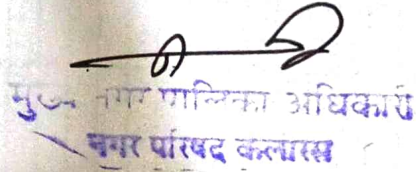 मुख्य नगर पालिका अधिकारी
नगर परिषद कलारस